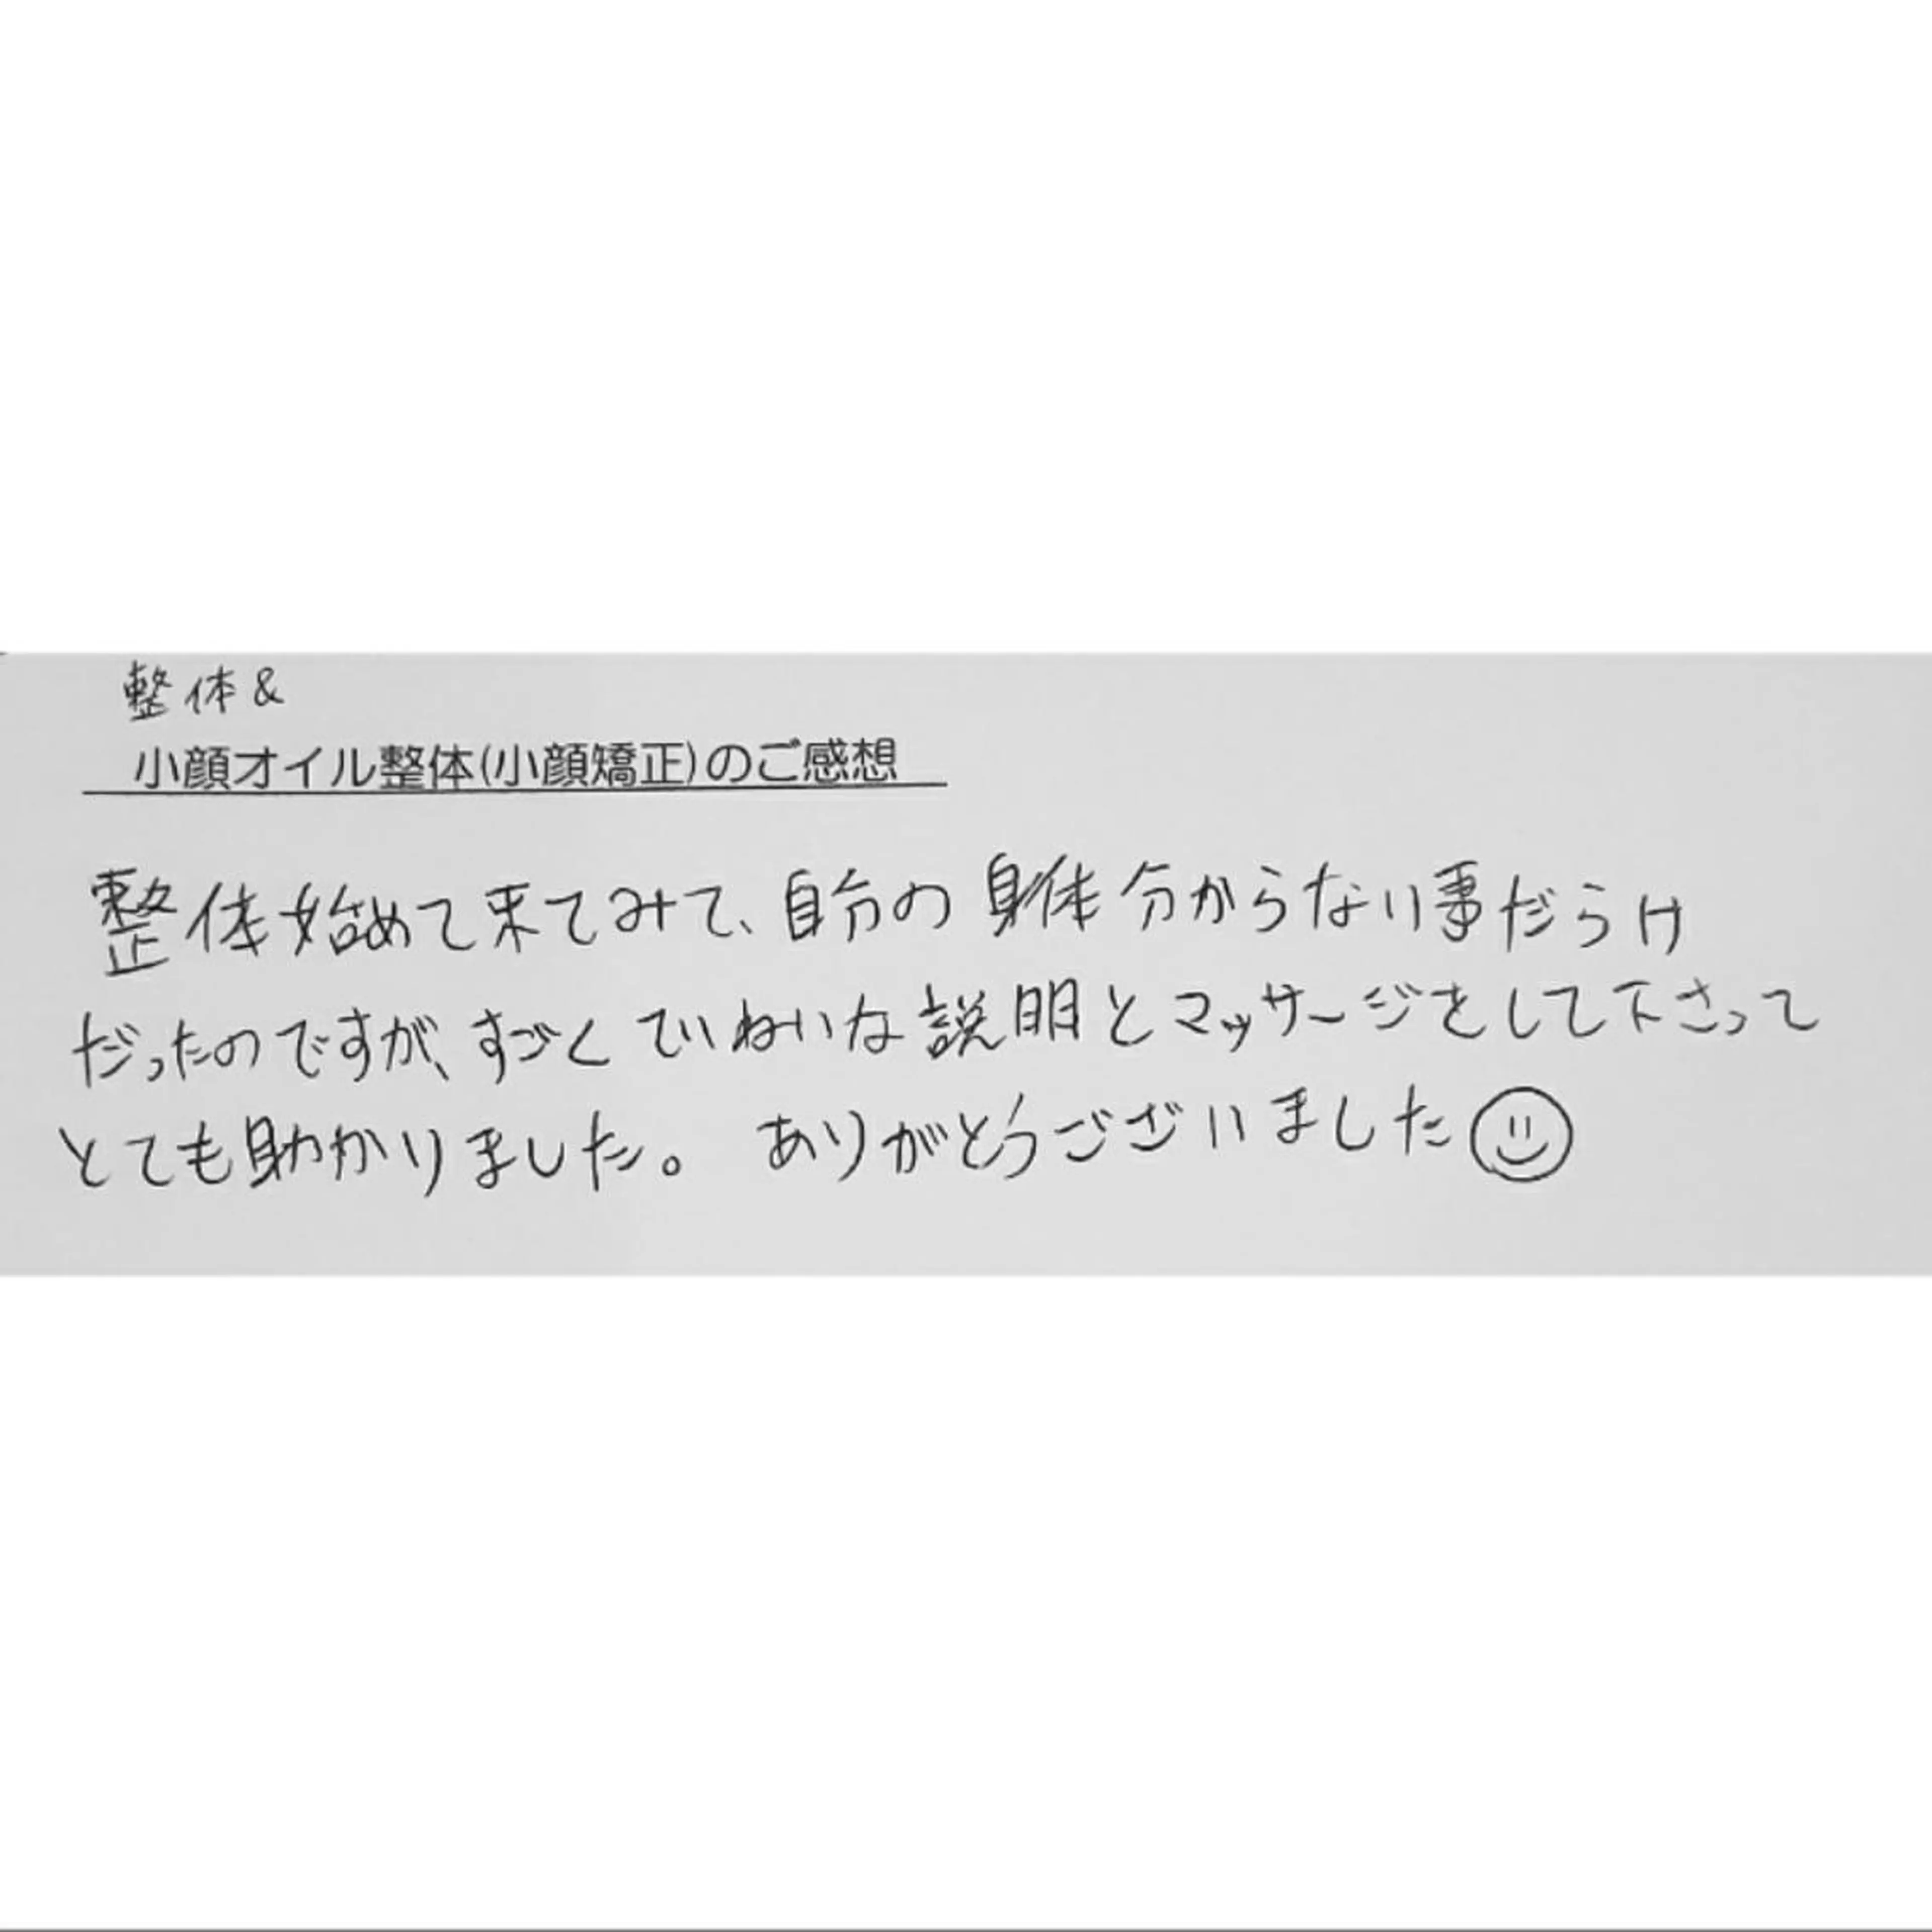 整体&
小顔オイル整体(小顔矯正)のご感想
整体始めて来てみて、自分の身体分からない事だらけ
だったのですが、すごくていねいな説明とマッサージをして下さって
とても助かりました。 ありがとうございました